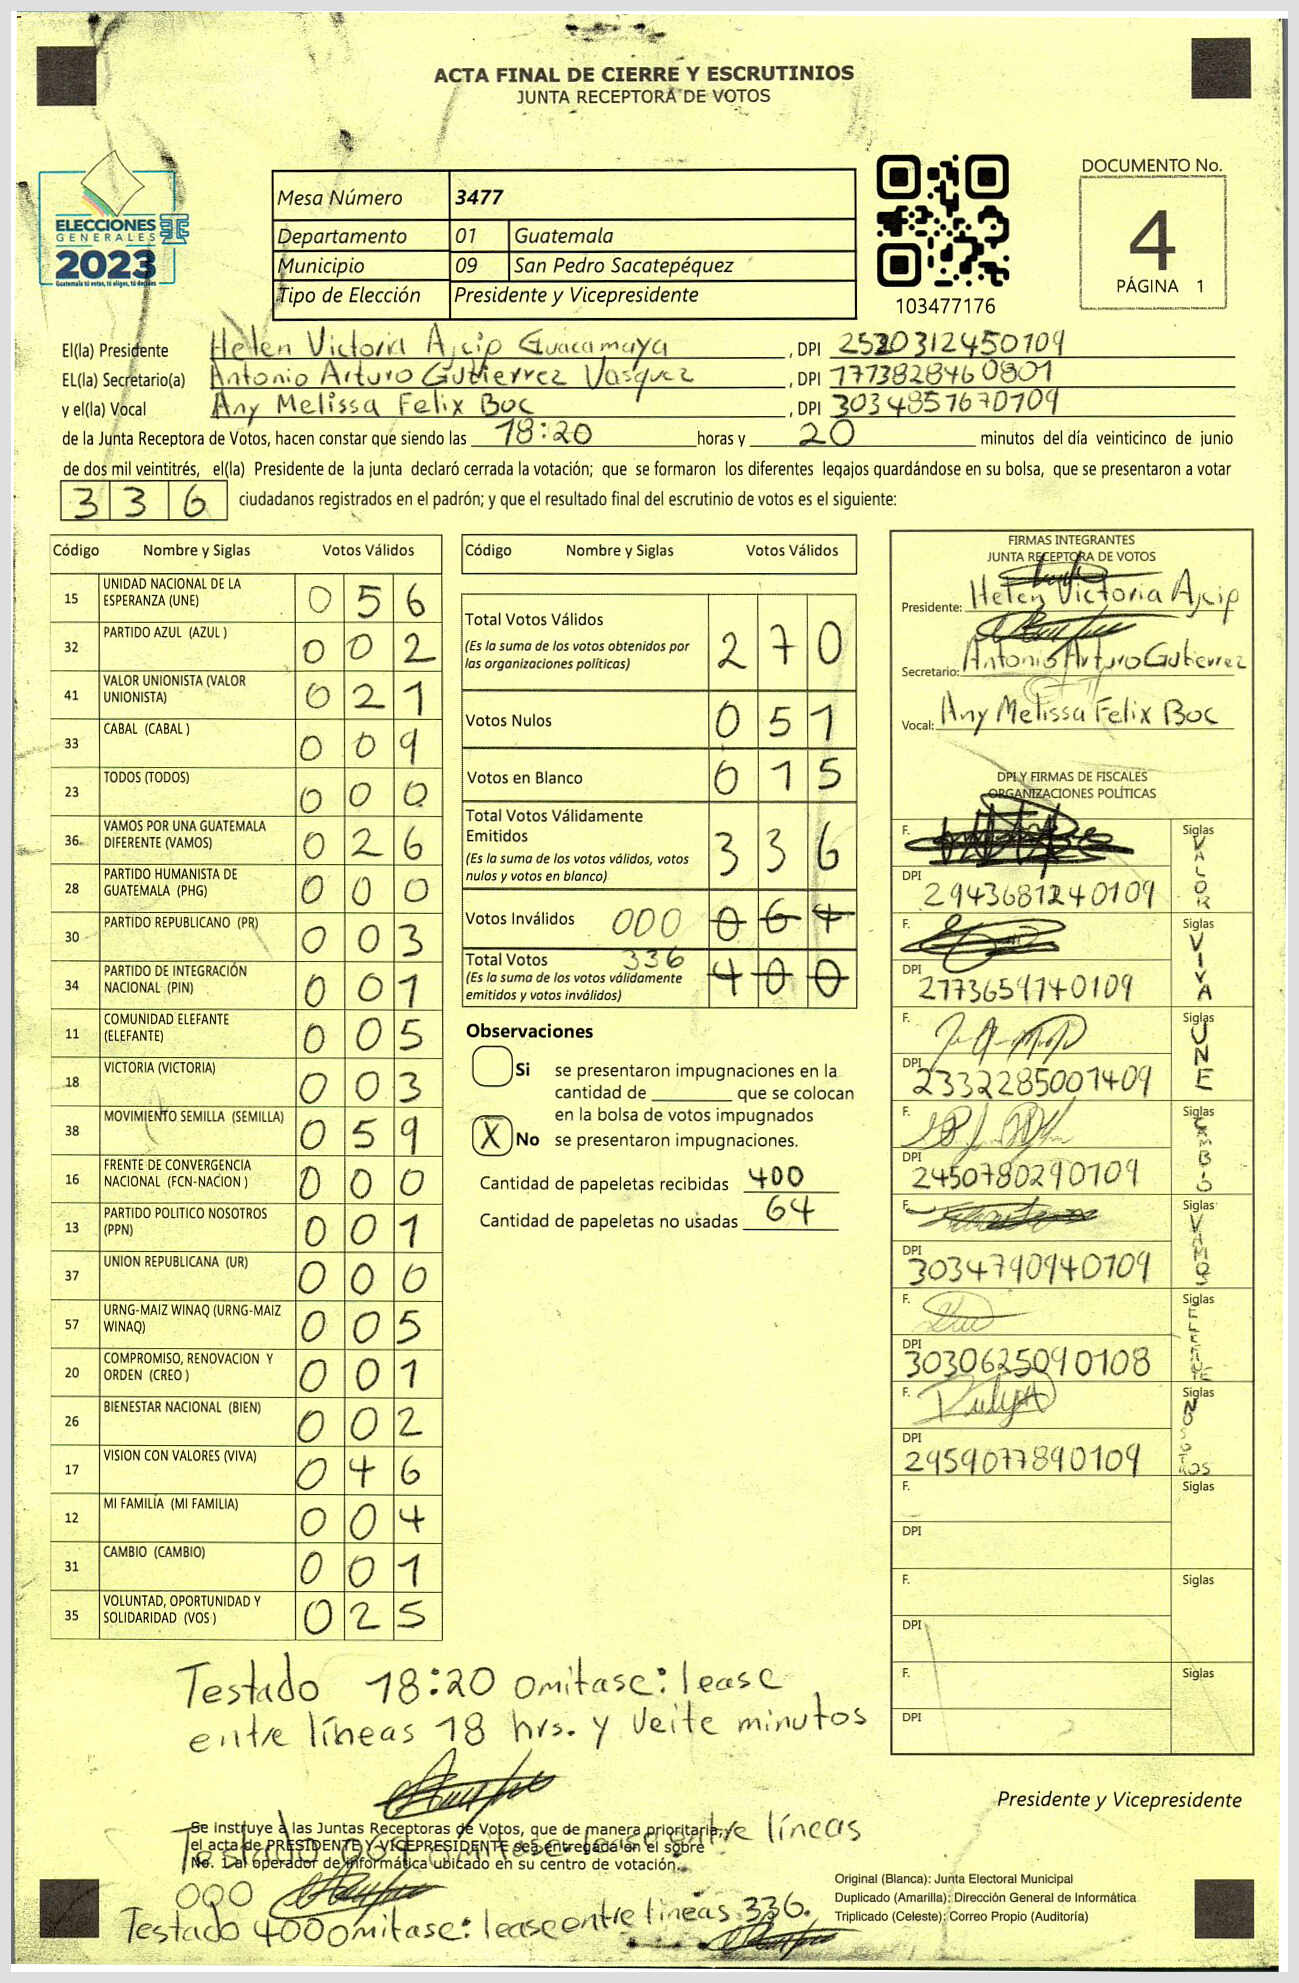 ACTA FINAL DE CIERRE Y ESCRUTINIOS
JUNTA RECEPTORA DE VOTOS
ELECCIONES
GENERALES
2023
Guatemala tú votas, tú eliges, tú decides
Mesa Número 3477
Departamento 01 Guatemala
Municipio 09 San Pedro Sacatepéquez
Tipo de Elección Presidente y Vicepresidente
103477176
DOCUMENTO No.
4
PÁGINA 1
El(la) Presidente Helen Victoria Ajcip Guacamaya , DPI 2520312450109
EL(la) Secretario(a) Antonio Arturo Gutierrez Vasquez , DPI 1773828460801
y el(la) Vocal Any Melissa Felix Boc , DPI 3034851670109
de la Junta Receptora de Votos, hacen constar que siendo las 18:20 horas y 20 minutos del día veinticinco de junio
de dos mil veintitrés, el(la) Presidente de la junta declaró cerrada la votación; que se formaron los diferentes legajos guardándose en su bolsa, que se presentaron a votar
336 ciudadanos registrados en el padrón; y que el resultado final del escrutinio de votos es el siguiente:
Código Nombre y Siglas Votos Válidos
15 UNIDAD NACIONAL DE LA ESPERANZA (UNE) 056
32 PARTIDO AZUL (AZUL ) 002
41 VALOR UNIONISTA (VALOR UNIONISTA) 021
33 CABAL (CABAL ) 009
23 TODOS (TODOS) 000
36 VAMOS POR UNA GUATEMALA DIFERENTE (VAMOS) 026
28 PARTIDO HUMANISTA DE GUATEMALA (PHG) 000
30 PARTIDO REPUBLICANO (PR) 003
34 PARTIDO DE INTEGRACIÓN NACIONAL (PIN) 001
11 COMUNIDAD ELEFANTE (ELEFANTE) 005
18 VICTORIA (VICTORIA) 003
38 MOVIMIENTO SEMILLA (SEMILLA) 059
16 FRENTE DE CONVERGENCIA NACIONAL (FCN-NACION ) 000
13 PARTIDO POLITICO NOSOTROS (PPN) 001
37 UNION REPUBLICANA (UR) 000
57 URNG-MAIZ WINAQ (URNG-MAIZ WINAQ) 005
20 COMPROMISO, RENOVACION Y ORDEN (CREO ) 001
26 BIENESTAR NACIONAL (BIEN) 002
17 VISION CON VALORES (VIVA) 046
12 MI FAMILIA (MI FAMILIA) 004
31 CAMBIO (CAMBIO) 001
35 VOLUNTAD, OPORTUNIDAD Y SOLIDARIDAD (VOS ) 025
Código Nombre y Siglas Votos Válidos
Total Votos Válidos 270
(Es la suma de los votos obtenidos por
las organizaciones políticas)
Votos Nulos 051
Votos en Blanco 015
Total Votos Válidamente
Emitidos 336
(Es la suma de los votos válidos, votos
nulos y votos en blanco)
Votos Inválidos 000 064
Total Votos 336 400
(Es la suma de los votos válidamente
emitidos y votos inválidos)
Observaciones
Si se presentaron impugnaciones en la
cantidad de que se colocan
en la bolsa de votos impugnados
X No se presentaron impugnaciones.
Cantidad de papeletas recibidas 400
Cantidad de papeletas no usadas 64
FIRMAS INTEGRANTES
JUNTA RECEPTORA DE VOTOS
Presidente: Helen Victoria Ajcip
Secretario: Antonio Arturo Gutierrez
Vocal: Any Melissa Felix Boc
DPI Y FIRMAS DE FISCALES
ORGANIZACIONES POLÍTICAS
F. Siglas VALOR
DPI 2943681240109
F. Siglas VIVA
DPI 2773659740109
F. Siglas UNE
DPI 2332285001409
F. Siglas CAMBIO
DPI 2450780290109
F. Siglas VAMOS
DPI 3034790940109
F. Siglas ELEFANTE
DPI 3030625090108
F. Siglas NOSOTROS
DPI 2959077890109
F. Siglas
DPI
F. Siglas
DPI
F. Siglas
DPI
Testado 18:20 omitase: lease
entre líneas 18 hrs. y veite minutos
Presidente y Vicepresidente
Se instruye a las Juntas Receptoras de Votos, que de manera prioritaria,
el acta de PRESIDENTE Y VICEPRESIDENTE sea entregada en el sobre
No. 1 al operador de informática ubicado en su centro de votación.
Testado 064 omitase: lease entre líneas
000
Testado 400 omitase: lease entre lineas 336.
Original (Blanca): Junta Electoral Municipal
Duplicado (Amarilla): Dirección General de Informática
Triplicado (Celeste): Correo Propio (Auditoría)